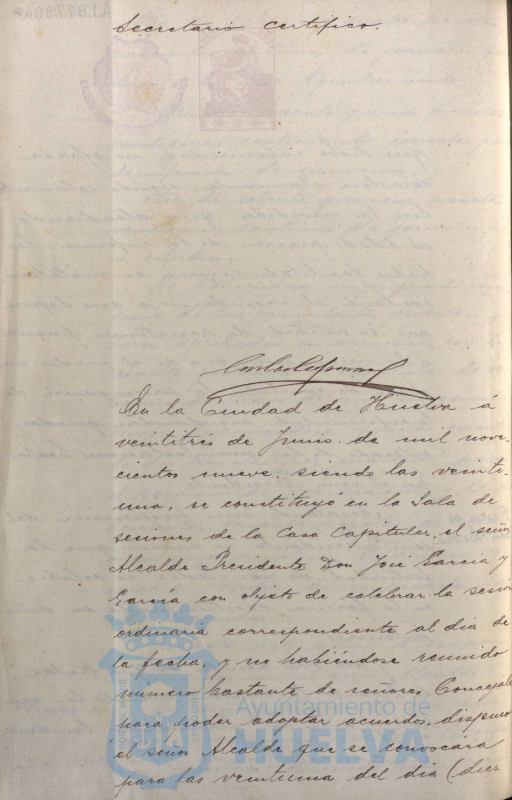 Secretario certifico.
En la Ciudad de Huelva á
veintitrés de Junio de mil nove-
cientos nueve, siendo las veinti-
una, se constituyó en la Sala de
sesiones de la Casa Capitular, el señor
Alcalde Presidente Don José García y
García con objeto de celebrar la sesión
ordinaria correspondiente al dia de
la fecha, y no habiéndose reunido
número bastante de señores Concejales
para poder adoptar acuerdos, dispuso
el señor Alcalde que se convocara
para las veintiuna del dia (diez
Ayuntamiento de
HUELVA